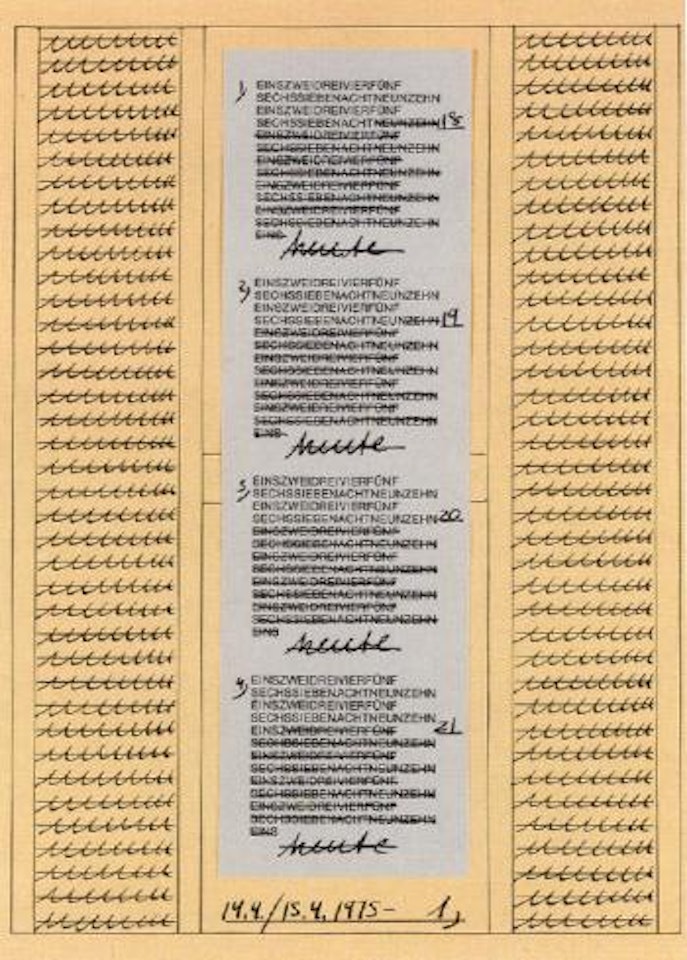 1, EINSZWEIDREIVIERFÜNF
SECHSSIEBENACHTNEUNZEHN
EINSZWEIDREIVIERFÜNF
SECHSSIEBENACHTNEUNZEHN 18
EINSZWEIDREIVIERFÜNF
SECHSSIEBENACHTNEUNZEHN
EINSZWEIDREIVIERFÜNF
SECHSSIEBENACHTNEUNZEHN
EINSZWEIDREIVIERFÜNF
SECHSSIEBENACHTNEUNZEHN
EINSZWEIDREIVIERFÜNF
SECHSSIEBENACHTNEUNZEHN
EINS
heute
2, EINSZWEIDREIVIERFÜNF
SECHSSIEBENACHTNEUNZEHN
EINSZWEIDREIVIERFÜNF
SECHSSIEBENACHTNEUNZEHN 19
EINSZWEIDREIVIERFÜNF
SECHSSIEBENACHTNEUNZEHN
EINSZWEIDREIVIERFÜNF
SECHSSIEBENACHTNEUNZEHN
EINSZWEIDREIVIERFÜNF
SECHSSIEBENACHTNEUNZEHN
EINSZWEIDREIVIERFÜNF
SECHSSIEBENACHTNEUNZEHN
EINS
heute
3, EINSZWEIDREIVIERFÜNF
SECHSSIEBENACHTNEUNZEHN
EINSZWEIDREIVIERFÜNF
SECHSSIEBENACHTNEUNZEHN 20
EINSZWEIDREIVIERFÜNF
SECHSSIEBENACHTNEUNZEHN
EINSZWEIDREIVIERFÜNF
SECHSSIEBENACHTNEUNZEHN
EINSZWEIDREIVIERFÜNF
SECHSSIEBENACHTNEUNZEHN
EINSZWEIDREIVIERFÜNF
SECHSSIEBENACHTNEUNZEHN
EINS
heute
4, EINSZWEIDREIVIERFÜNF
SECHSSIEBENACHTNEUNZEHN
EINSZWEIDREIVIERFÜNF
SECHSSIEBENACHTNEUNZEHN
EINSZWEIDREIVIERFÜNF 21
SECHSSIEBENACHTNEUNZEHN
EINSZWEIDREIVIERFÜNF
SECHSSIEBENACHTNEUNZEHN
EINSZWEIDREIVIERFÜNF
SECHSSIEBENACHTNEUNZEHN
EINSZWEIDREIVIERFÜNF
SECHSSIEBENACHTNEUNZEHN
EINS
heute
14.4./15.4.1975 – 1,